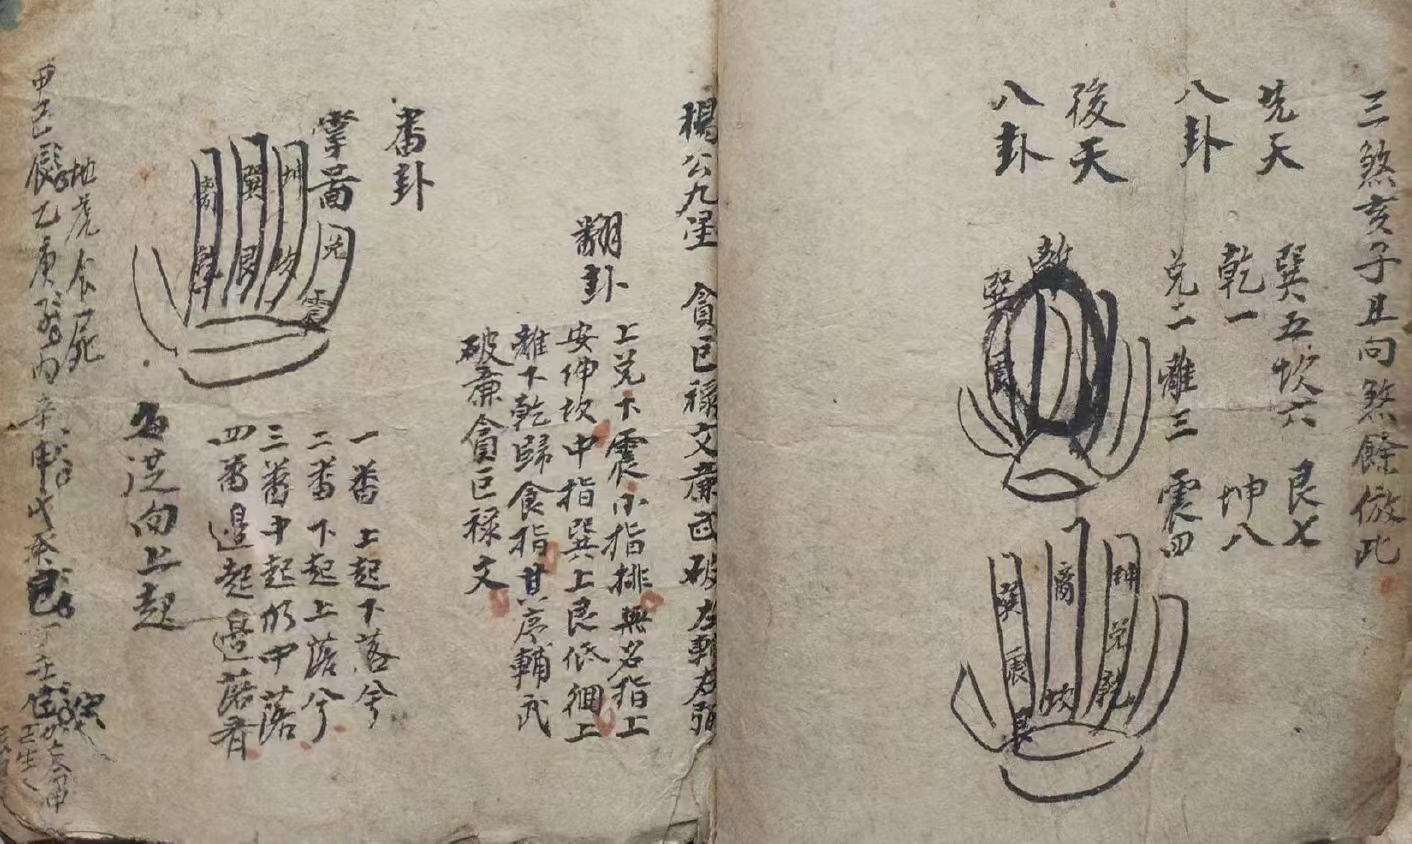 三煞亥子丑向煞餘倣此
先天
八卦
巽五坎六艮七
乾一坤八
兌二離三震四
後天
八卦
乾
巽
震
坤
離
兌
巽
震
坎
乾
艮
楊公九星貪巨祿文廉武破左輔右弼
翻卦
上兌下震小指排無名指上
安坤坎中指巽上艮低徊上
離下乾歸食指其序輔武
破廉貪巨祿文
番卦
掌啚
兌
震
坤
坎
巽
艮
離
乾
一番上起下落兮
二番下起上落兮
三番中起仍中落
四番邊起邊落看
向上起
地虎食屍
甲己
乙庚
丙辛